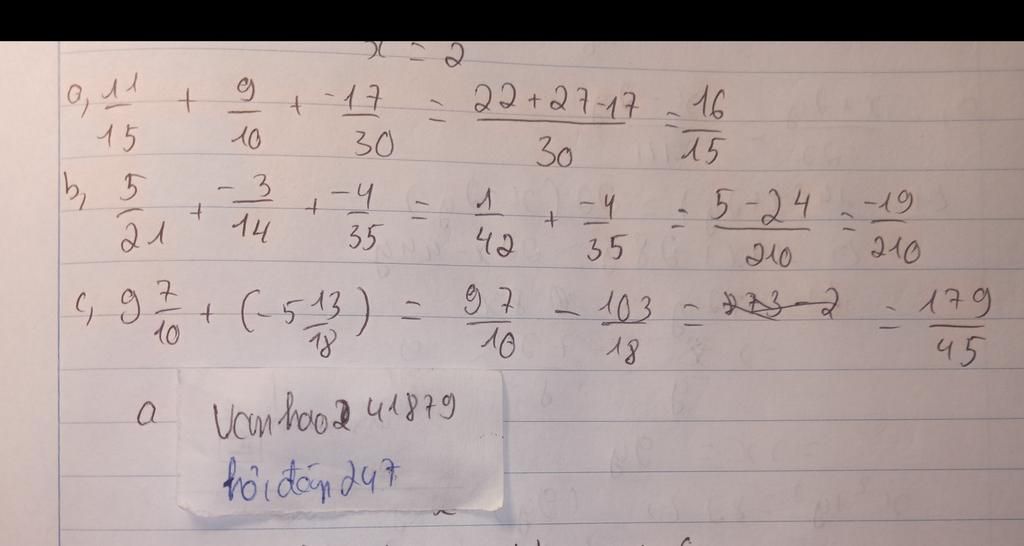 x = 2
a, 11/15 + 9/10 + -17/30 = 22+27-17/30 = 16/15
b, 5/21 + -3/14 + -4/35 = 1/42 + -4/35 = 5-24/210 = -19/210
c, 9 7/10 + (-5 13/18) = 97/10 - 103/18 = = 179/45
a
Vanhao2 41879
hỏi đáp 247